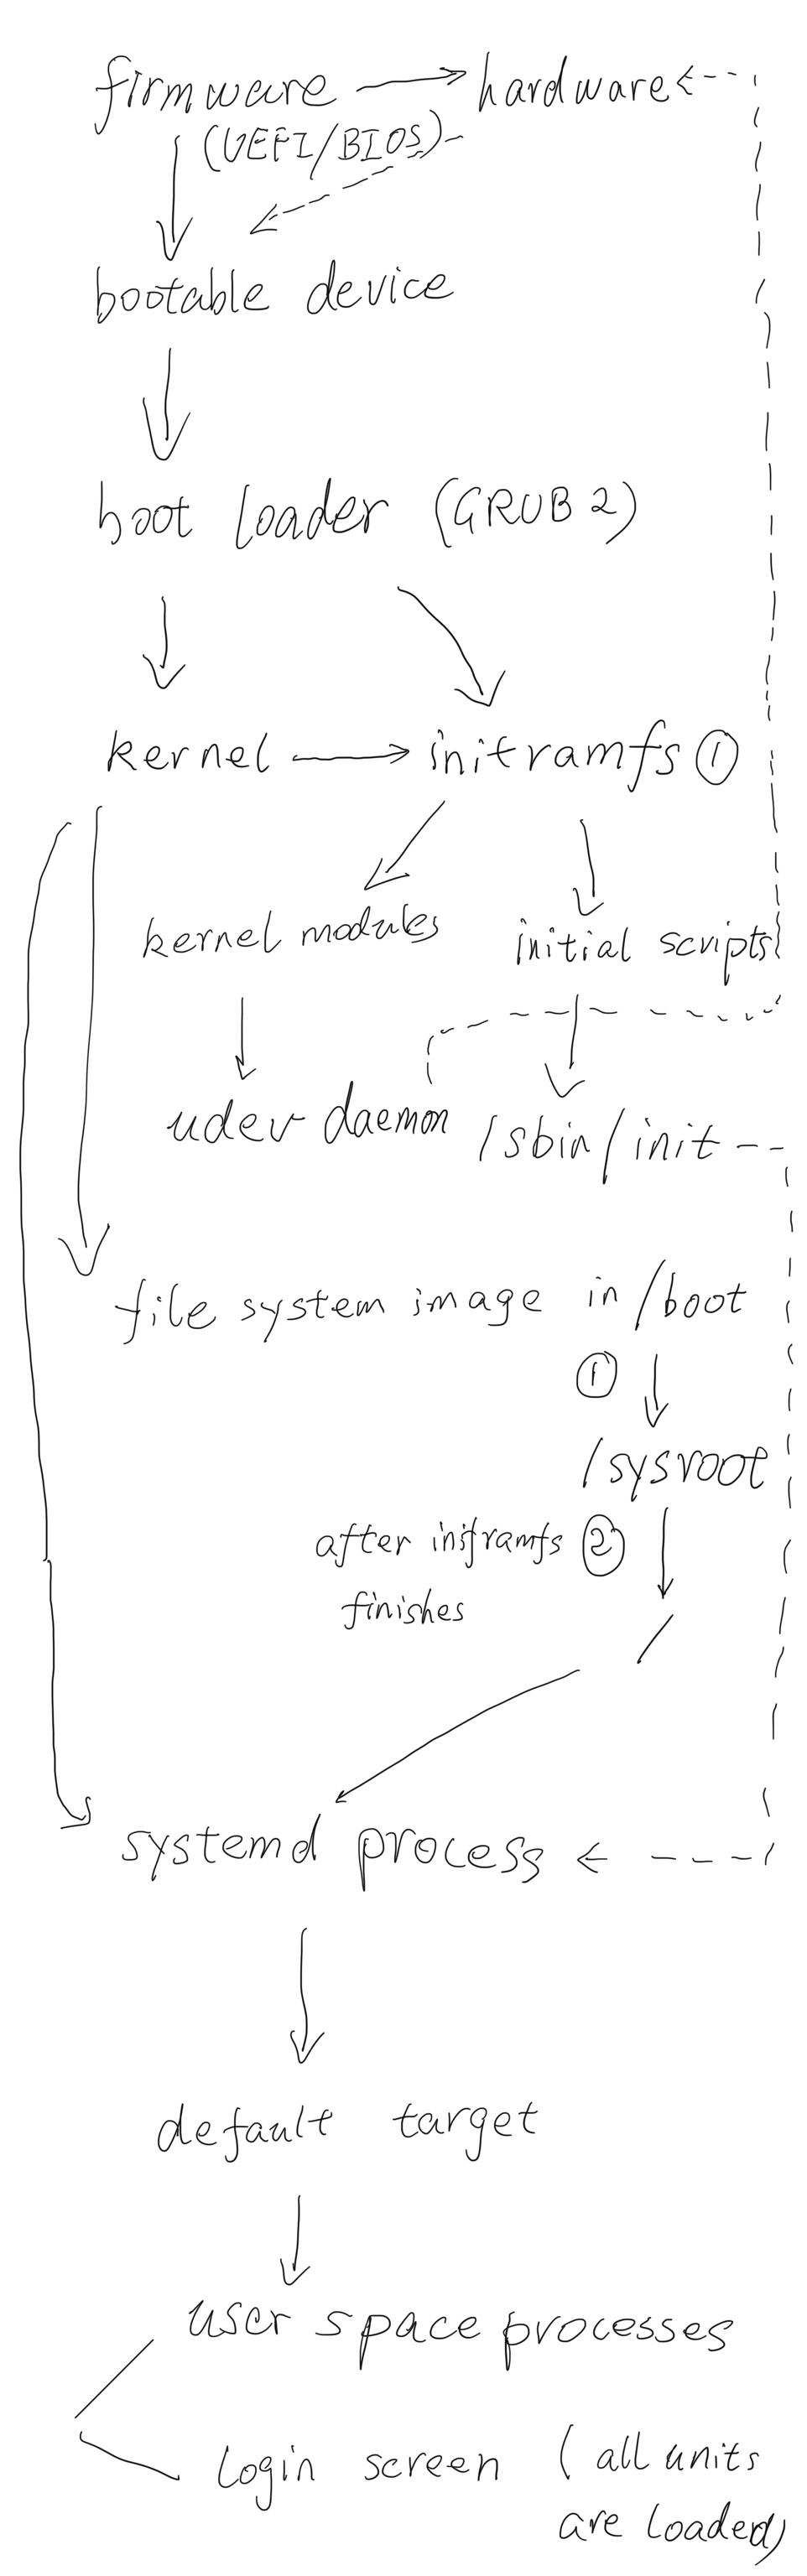 firmware hardware
(UEFI/BIOS)
bootable device
boot loader (GRUB 2)
kernel initramfs ①
kernel modules initial scripts
udev daemon /sbin/init
file system image in /boot
①
/sysroot
after initramfs ②
finishes
/
systemd process
default target
user space processes
login screen (all units
are loaded)